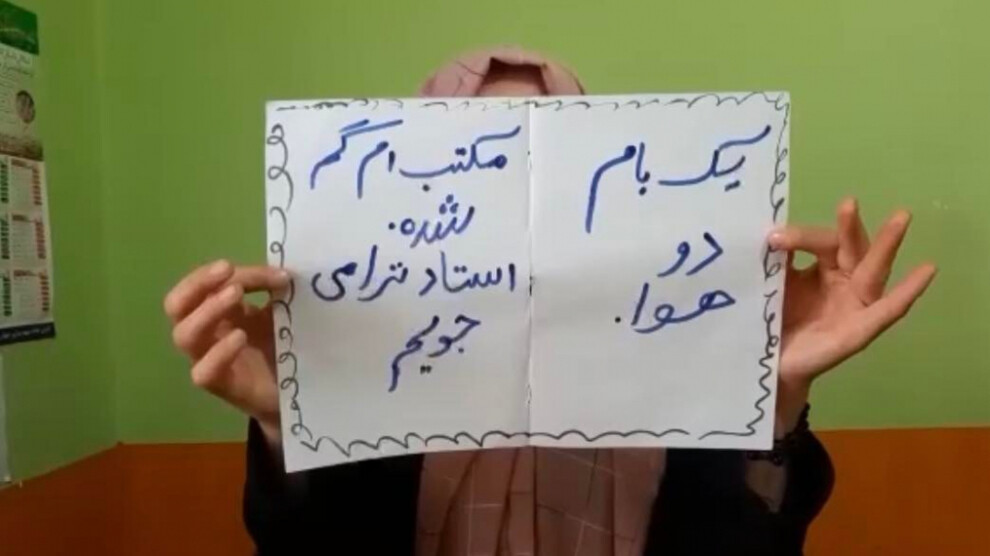 یک بام
دو
هوا.
مکتب ام گم
شده.
استاد ترا می
جویم